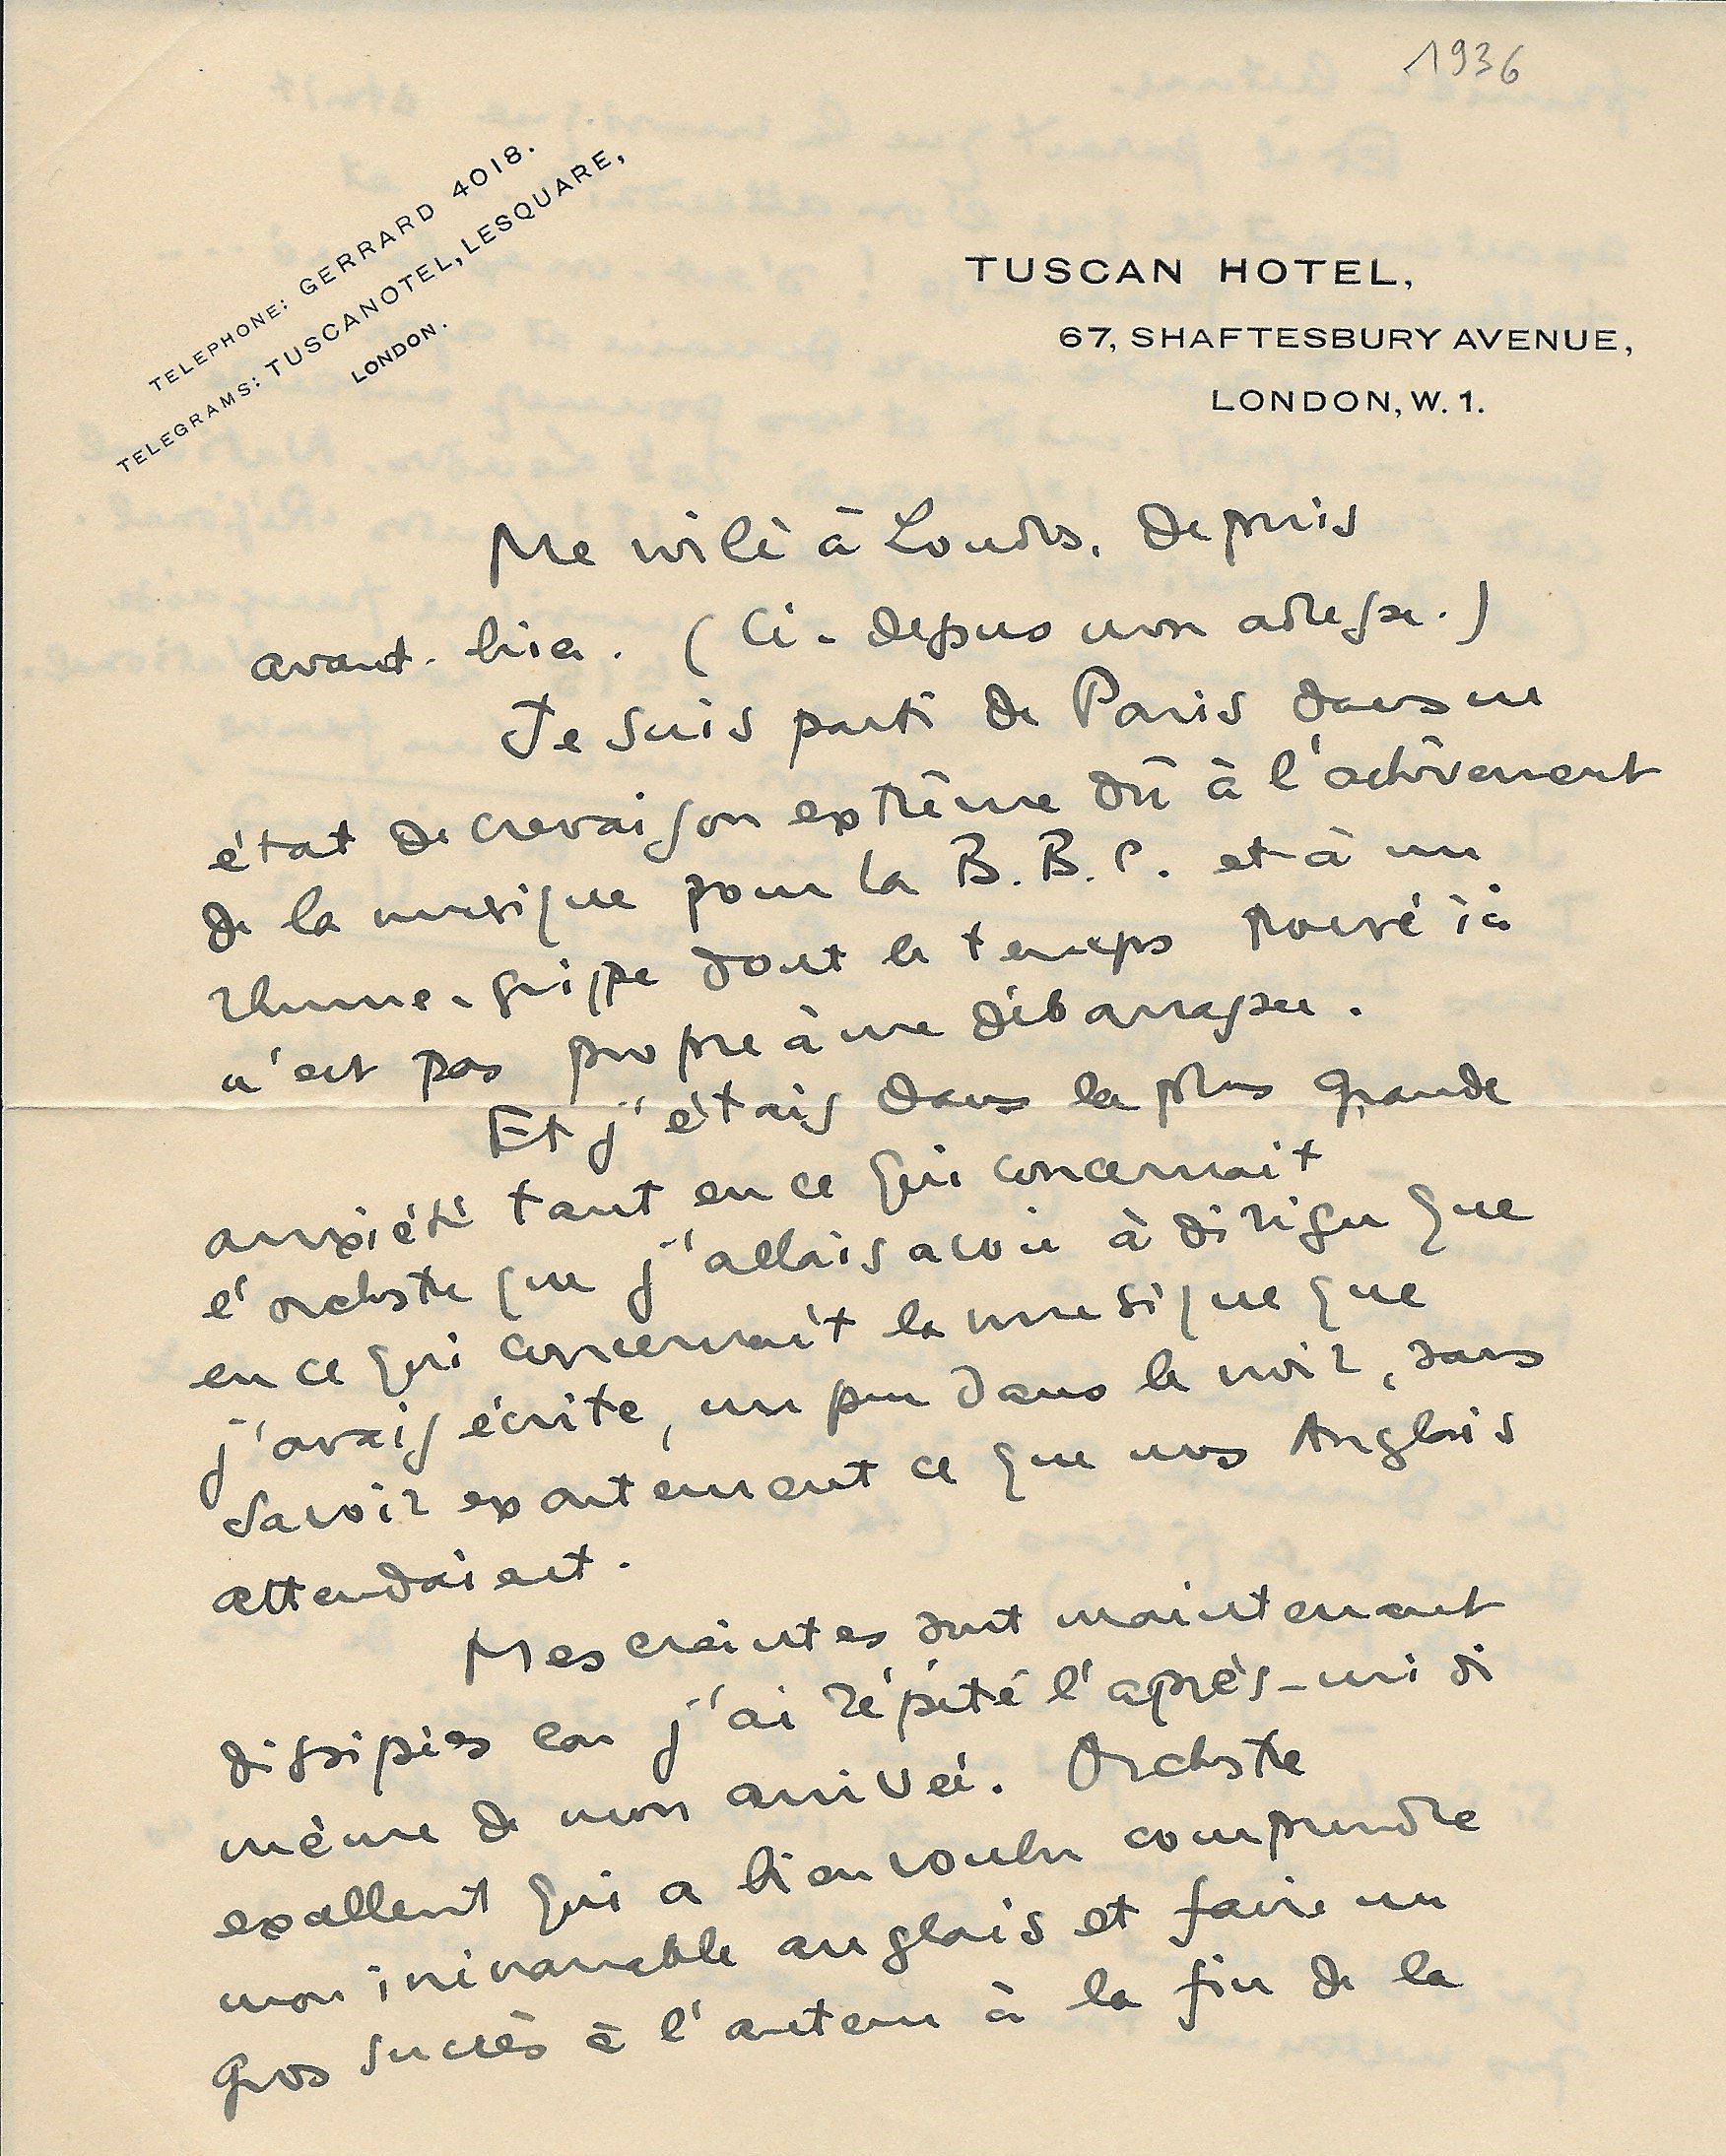 1936
TELEPHONE: GERRARD 4018.
TELEGRAMS: TUSCANOTEL, LESQUARE,
LONDON.
TUSCAN HOTEL,
67, SHAFTESBURY AVENUE,
LONDON, W. 1.
Me voilà à Londres. Depuis
avant-hier. (Ci-dessus mon adresse.)
Je suis parti de Paris dans un
état de crevaison extrême dû à l'achèvement
de la musique pour la B.B.C. et à un
rhume-grippe dont le temps trouvé ici
n'est pas propre à me débarrasser.
Et j'étais dans la plus grande
anxiété tant en ce qui concernait
l'orchestre que j'allais avoir à diriger que
en ce qui concernait la musique que
j'avais écrite, un peu dans le noir, sans
savoir exactement ce que nos Anglais
attendaient.
Mes craintes sont maintenant
dissipées car j'ai répété l'après-midi
même de mon arrivée. Orchestre
excellent qui a bien voulu comprendre
mon inénarrable anglais et faire un
gros succès à l'auteur à la fin de la